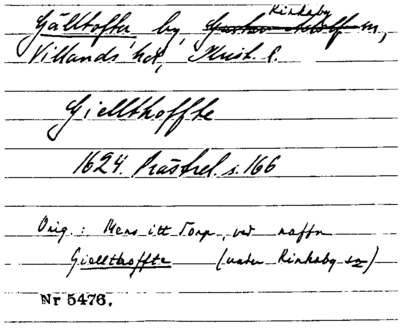 Kinkaby
Gälltofta, by, Gustav Adolf sn,
Villands hd, Krist. l.
Giellthoffte
1624. Prästrel. s. 166
Orig.: Mens itt Torp, ved naffn
Giellthoffte (under Rinkaby sn)
Nr 5476.